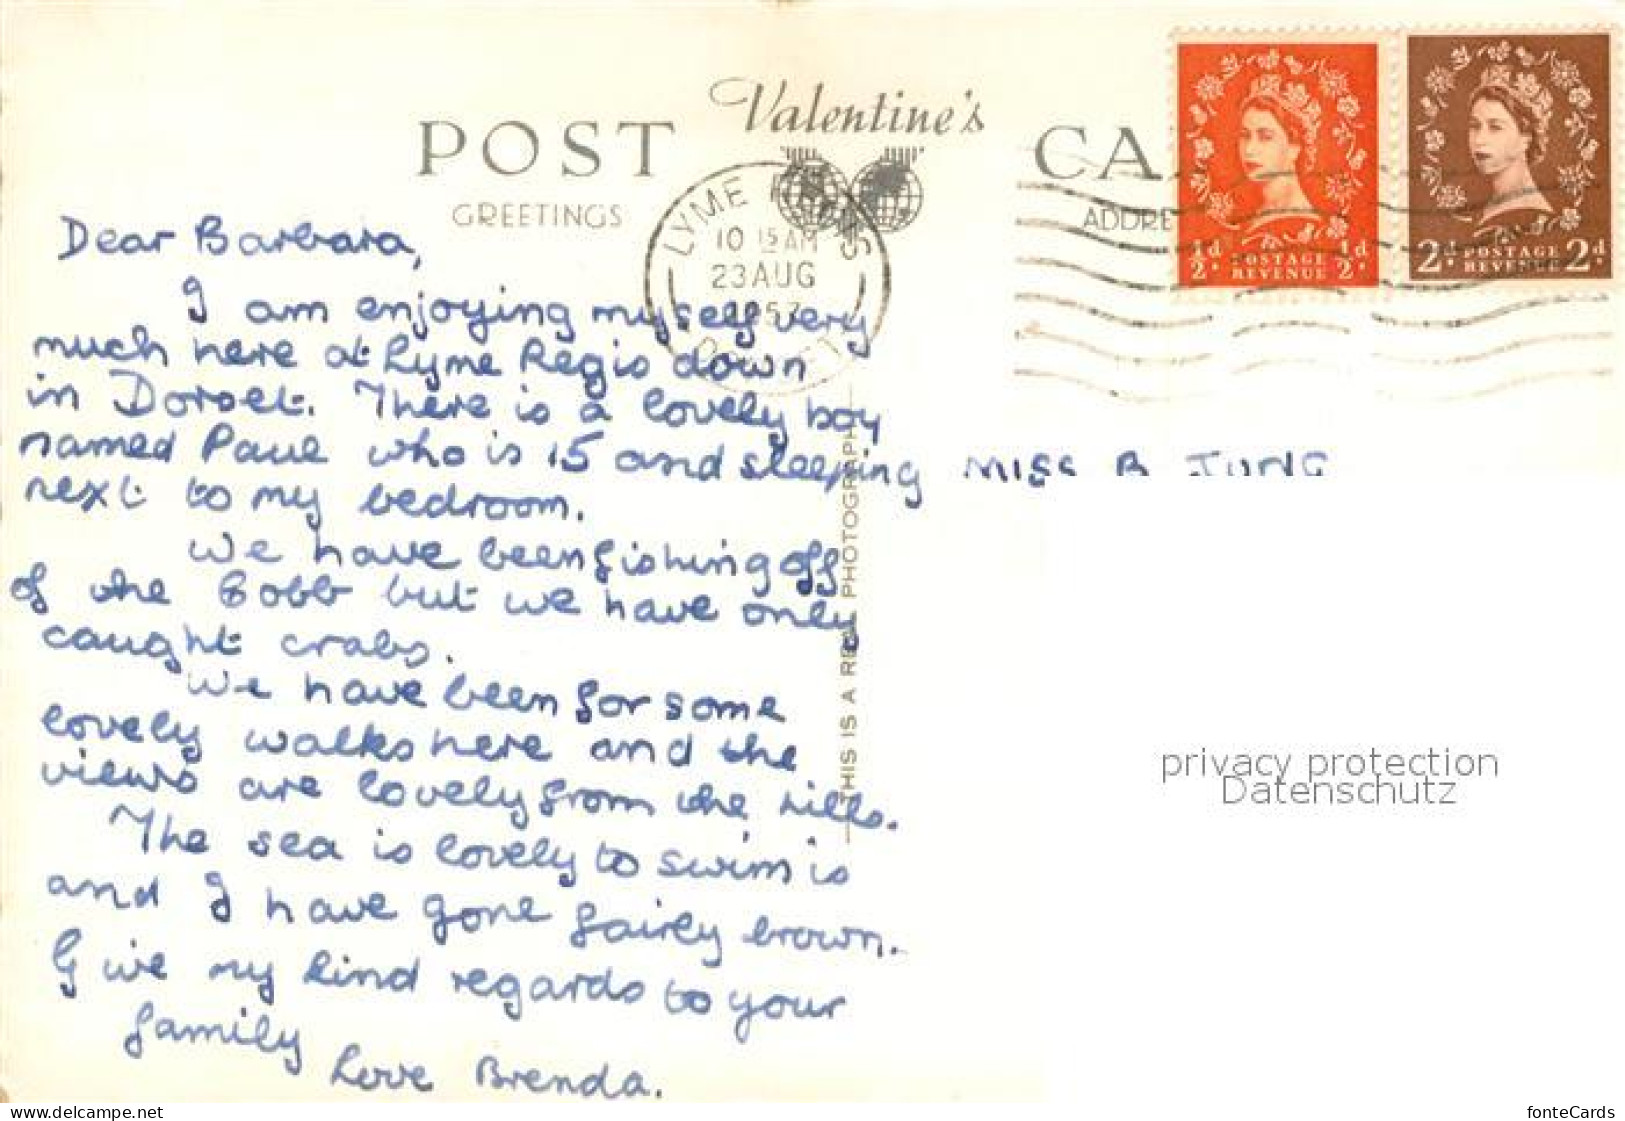 POST Valentine's CA
GREETINGS
ADDRE
LYME REGIS
10 15 AM
23 AUG
1957
DORSET
½d POSTAGE REVENUE ½d
2d POSTAGE REVENUE 2d
Dear Barbara,
I am enjoying myself very
much here at Lyme Regis down
in Dorset. There is a lovely boy
named Paul who is 15 and sleeping
next to my bedroom.
We have been fishing off
of the Cobb but we have only
caught crabs.
We have been for some
lovely walks here and the
views are lovely from the hills.
The sea is lovely to swim is
and I have gone fairly brown.
Give my kind regards to your
family
Love Brenda.
THIS IS A REAL PHOTOGRAPH
MISS B JUNG
privacy protection
Datenschutz
www.delcampe.net
fonteCards